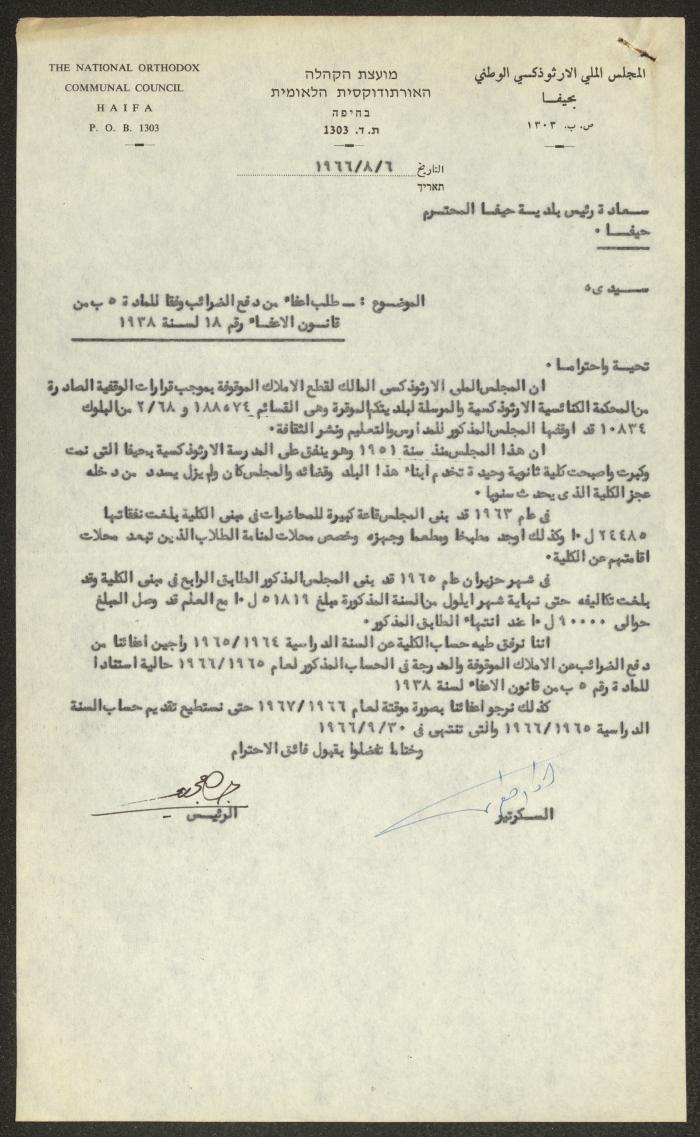 THE NATIONAL ORTHODOX
COMMUNAL COUNCIL
HAIFA
P. O. B. 1303
מועצת הקהלה
האורתודוקסית הלאומית
בחיפה
ת.ד. 1303
المجلس الملي الارثوذكسي الوطني
بحيفا
ص. ب. ١٣٠٣
التاريخ ١٩٦٦/٨/٦
תאריך
سعادة رئيس بلدية حيفا المحترم
حيفا ٠
سيدي٥
الموضوع : ـ طلب اعفاء من دفع الضرائب وفقا للمادة ٥ ب من
قانون الاعفاء رقم ١٨ لسنة ١٩٣٨
تحية واحتراما ٠
ان المجلس الملي الارثوذكسي المالك لقطع الاملاك الموقوفة بموجب قرارات الوقفية الصادرة
من المحكمة الكنائسية الارثوذكسية والمرسلة لبلديتكم الموقرة وهي القسائم ١٨٨٥٧٤ و ٢/٦٨ من البلوك
١٠٨٣٤ قد اوقفها المجلس المذكور للمدارس والتعليم ونشر الثقافة٠
ان هذا المجلس منذ سنة ١٩٥١ وهو ينفق على المدرسة الارثوذكسية بحيفا التي نمت
وكبرت واصبحت كلية ثانوية وحيدة تخدم ابناء هذا البلد وقضائه والمجلس كان ولم يزل يسدد من دخله
عجز الكلية الذي يحدث سنويا ٠
في عام ١٩٦٣ قد بنى المجلس قاعة كبيرة للمحاضرات في مبنى الكلية بلغت نفقاتها
٢٤٤٨٥ ل٠ا وكذلك اوجد مطبخا ومطعما وجهزه وخصص محلات لمنامة الطلاب الذين تبعد محلات
اقامتهم عن الكلية٠
في شهر حزيران عام ١٩٦٥ قد بنى المجلس المذكور الطابق الرابع في مبنى الكلية وقد
بلغت تكاليفه حتى نهاية شهر ايلول من السنة المذكورة مبلغ ٥١٨١٩ ل٠ا مع العلم قد وصل المبلغ
حوالي ٩٠٠٠٠ ل٠ا عند انتهاء الطابق المذكور٠
اننا نرفق طيه حساب الكلية عن السنة الدراسية ١٩٦٥/١٩٦٤ راجين اعفائنا من
دفع الضرائب عن الاملاك الموقوفة والمدرجة في الحساب المذكور لعام ١٩٦٦/١٩٦٥ حالية استنادا
للمادة رقم ٥ ب من قانون الاعفاء لسنة ١٩٣٨
كذلك نرجو اعفائنا بصورة موقتة لعام ١٩٦٧/١٩٦٦ حتى نستطيع تقديم حساب السنة
الدراسية ١٩٦٦/١٩٦٥ والتي تنتهي في ١٩٦٦/٩/٣٠
وختاما تفضلوا بقبول فائق الاحترام
السكرتير
الرئيس